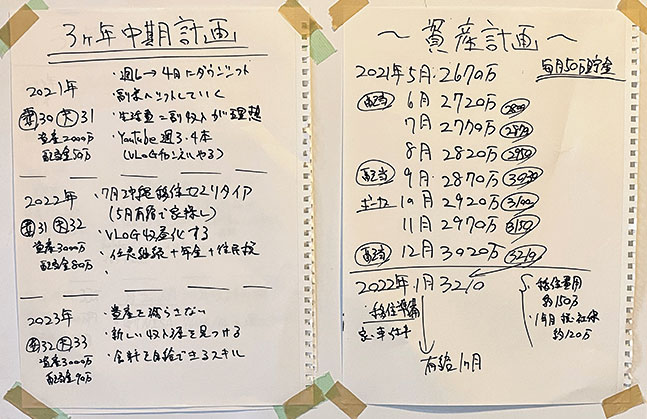 3ヶ年中期計画
2021年
・週6→4日にダウンシフト
・副末へシフトしていく
妻30 夫31
・生活費=副収入が理想
資産2000万
配当金50万
・YouTube週3.4本
2022年
・7月沖縄移住セミリタイア
(5月有給で家探し)
妻31 夫32
・VLOG収益化する
資産3000万
配当金80万
・任意継続+年金+住民税
・
2023年
・資産を減らさない
妻32 夫33
・新しい収入源を見つける
資産3000万
配当金90万
・食料を自給できるスキル
〜資産計画〜
2021年5月:2670万
毎月50万貯金
配当 6月 2720万
7月 2770万
8月 2820万
配当 9月 2870万
ボーナス 10月 2920万 3100
11月 2970万 3150
配当 12月 3020万 3210
2022年.1月 3210
・移住準備
家・車・仕事
有給1ヶ月
・移住費用
約150万
・1年月 税・社保
約120万